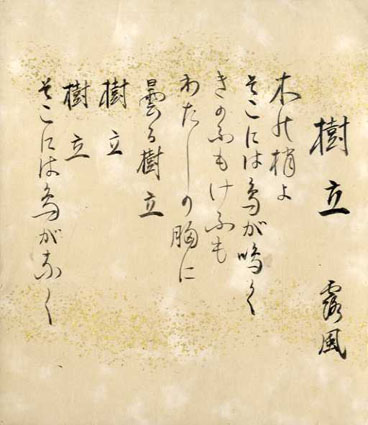 樹立
露風
木の梢よ
そこには鳥が鳴く
きのふもけふも
わたしの胸に
曇る樹立
樹立
樹立
そこには鳥がなく